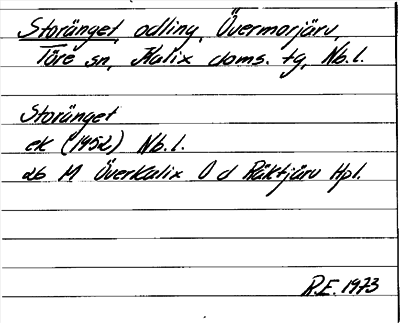 Storänget odling, Övermorjärv,
Töre sn, Kalix doms. tg, Nb.l.
Storänget
ek (1952) Nb.l.
26 M Överkalix O d Räktjärv Hpl.
R.E. 1973